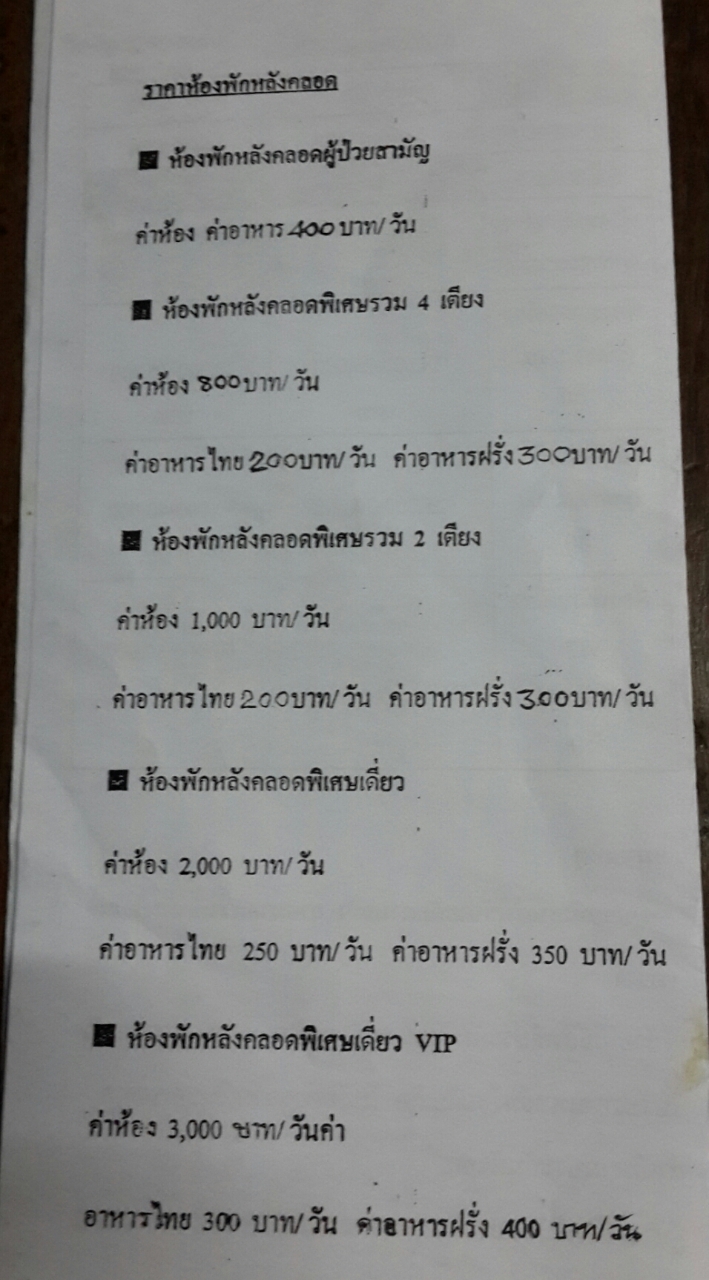 ราคาห้องพักหลังคลอด
ห้องพักหลังคลอดผู้ป่วยสามัญ
ค่าห้อง ค่าอาหาร 400 บาท/ วัน
ห้องพักหลังคลอดพิเศษรวม 4 เตียง
ค่าห้อง 800 บาท/ วัน
ค่าอาหารไทย 200 บาท/ วัน ค่าอาหารฝรั่ง 300 บาท/ วัน
ห้องพักหลังคลอดพิเศษรวม 2 เตียง
ค่าห้อง 1,000 บาท/ วัน
ค่าอาหารไทย 200 บาท/ วัน ค่าอาหารฝรั่ง 300 บาท/ วัน
ห้องพักหลังคลอดพิเศษเดี่ยว
ค่าห้อง 2,000 บาท/ วัน
ค่าอาหารไทย 250 บาท/ วัน ค่าอาหารฝรั่ง 350 บาท/ วัน
ห้องพักหลังคลอดพิเศษเดี่ยว VIP
ค่าห้อง 3,000 บาท/ วันค่า
อาหารไทย 300 บาท/ วัน ค่าอาหารฝรั่ง 400 บาท/วัน